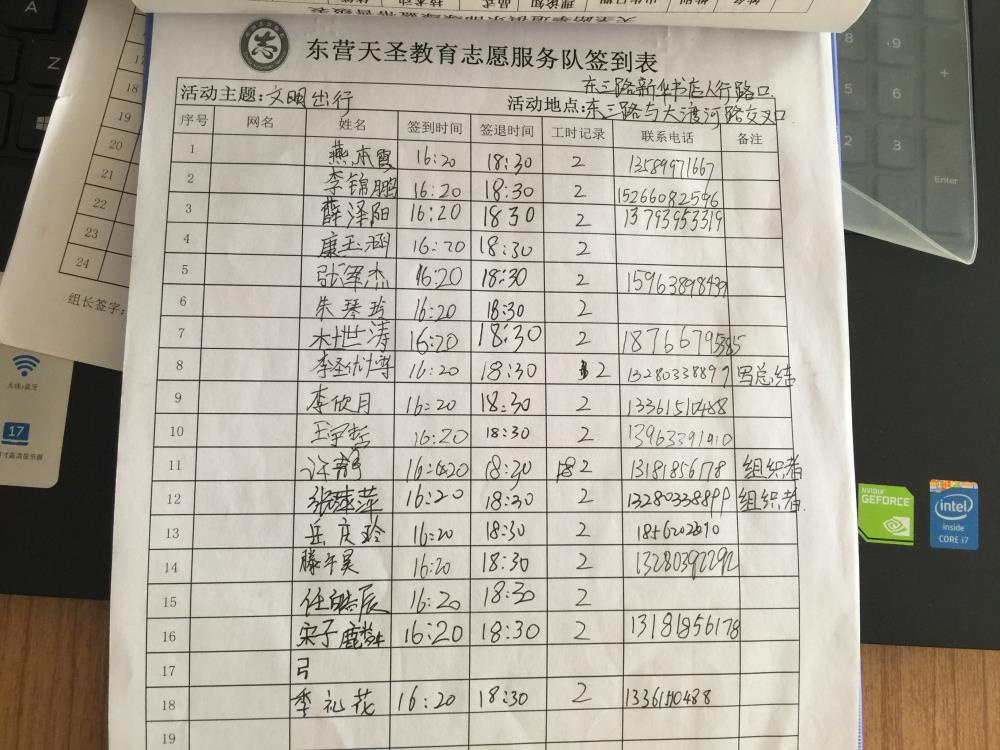 东营天圣教育志愿服务队签到表
东三路新华书店人行路口
活动主题:文明出行 活动地点:东三路与大渡河路交叉口
序号 网名 姓名 签到时间 签退时间 工时记录 联系电话 备注
1 燕本霞 16:20 18:30 2 13589971667
2 李锦鹏 16:20 18:30 2 15266082596
3 薛泽阳 16:20 1830 2 13793953319
4 康玉涵 16:20 18:30 2
5 张泽杰 16:20 18:30 2 15963898439
6 朱琴玲 16:20 18:30 2
7 林世涛 16:20 18:30 2 18766795385
8 16:20 18:30 2 13280338897 写总结
9 李欣月 16:20 18:30 2 13361510488
10 王宇哲 16:20 18:30 2 13963391910
11 许静 18:30 2 13181856178 组织者
12 张珠萍 16:20 18:30 2 13280338899 组织者
13 岳庆玲 16:20 18:30 2
14 滕午昊 16:20 18:30 2 13280392292
15 任皓辰 16:20 18:30 2
16 宋子麟 16:20 18:30 2 13181856178
17 弓
18 季礼花 16:20 18:30 2
19
17
18
19
20
21
22
23
24
组长签字:
17
A
Z
9
8
6
5
3
2
+
Enter
NVIDIA
GEFORCE
intel
inside
CORE i7